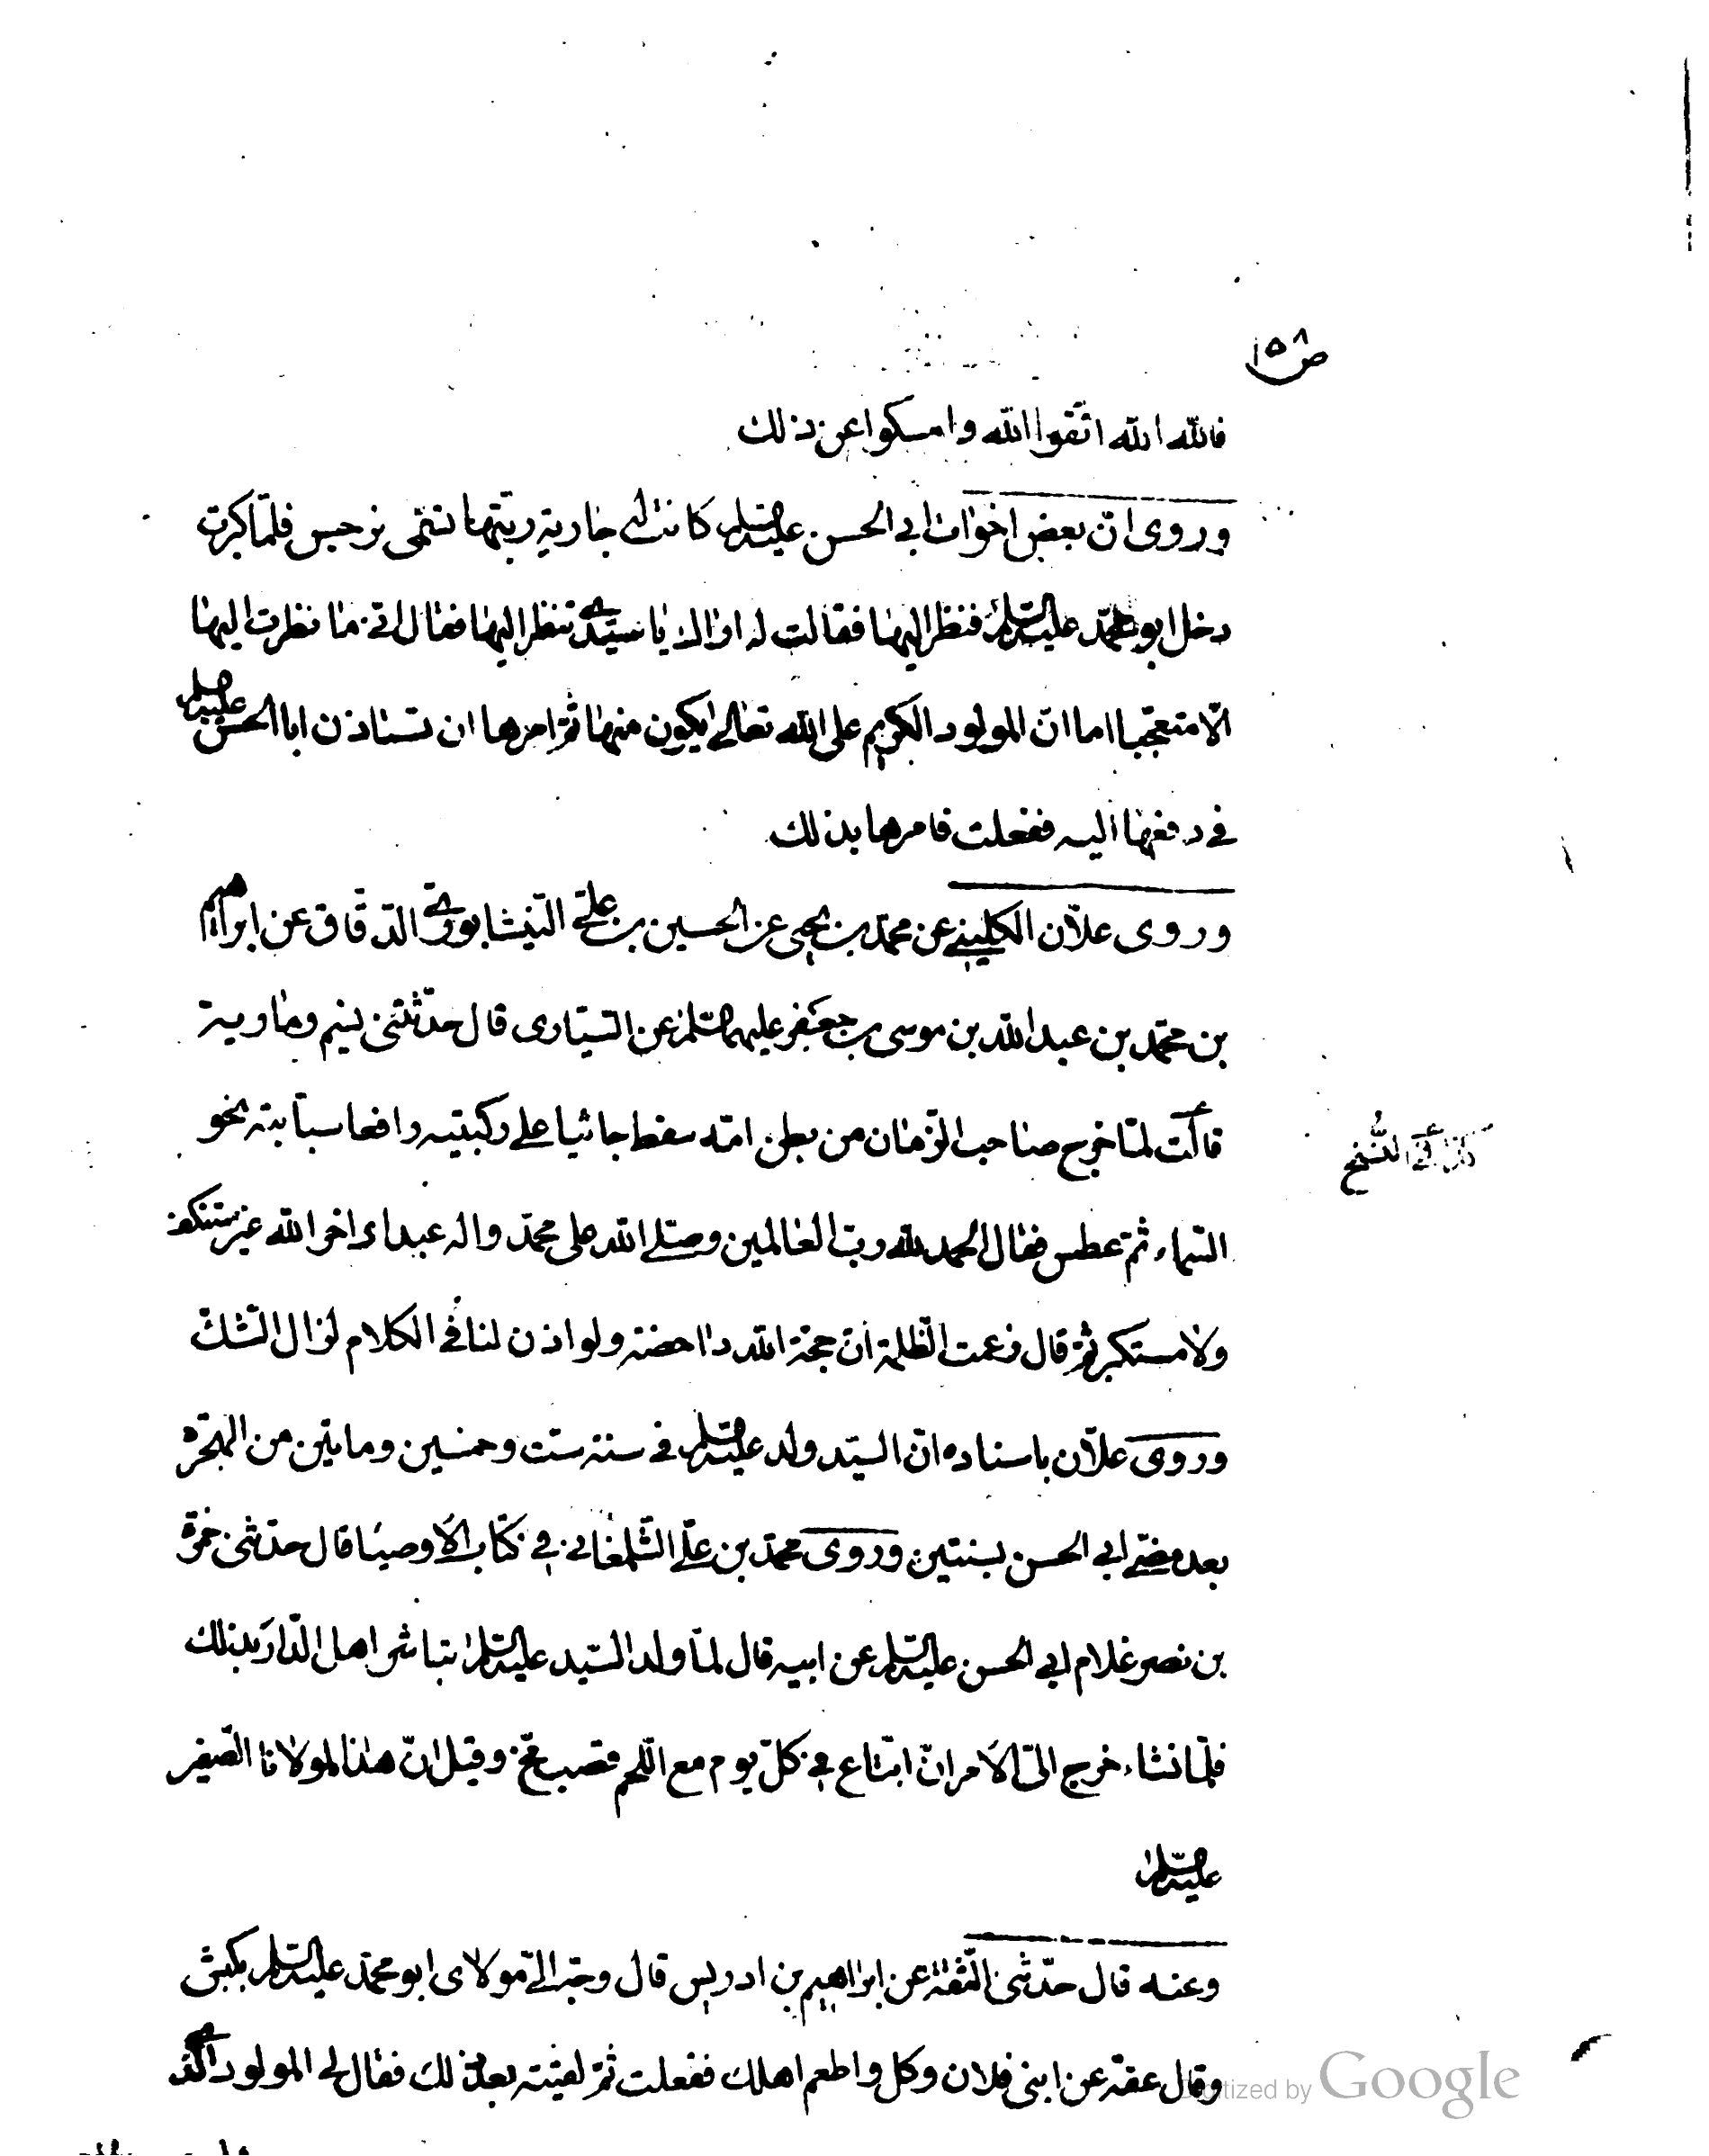 ص ١٥٨
فالله الله اتّقوا الله وامسكوا عن ذلك
وروى انّ بعض اخوات ابى الحسن عليه السلم كانت لها جارية ربّتها تسمّى نرجس فلمّا كبرت
دخل ابو محمّد عليه السلم فنظر اليها فقالت له اراك يا سيّدى تنظر اليها فقال انّى ما نظرت اليها
الّا متعجّبا اما انّ المولود الكريم على الله تعالى يكون منها ثمّ امرها ان تستاذن ابا الحسن عليه السلم
فى دفعها اليه ففعلت فامرها بذلك
وروى علّان الكلينى عن محمّد بن يحيى عن الحسين بن على النّيشابورى الدّقاق عن ابراهيم
بن محمّد بن عبد الله بن موسى بن جعفر عليهما السلم عن السّيّارى قال حدّثتنى نسيم ومارية
قالت لمّا خرج صاحب الزّمان من بطن امّه سقط جاثيا على ركبتيه رافعا سبّابته نحو
كذا فى النُّسخ
السّماء ثمّ عطس فقال الحمد لله ربّ العالمين وصلّى الله على محمّد واله عبدا داخرا لله غير مستنكف
ولا مستكبر ثمّ قال زعمت الظّلمة انّ حجّة الله داحضة ولو اذن لنا فى الكلام لزال الشّكّ
وروى علّان باسناده انّ السيّد ولد عليه السلم فى سنة ستّ وخمسين ومايتين من الهجرة
بعد مضىّ ابى الحسن بسنتين وروى محمّد بن علىّ الشّلمغانى فى كتاب الاوصيا قال حدّثنى حمزة
بن نصر غلام ابى الحسن عليه السلم عن ابيه قال لمّا ولد السّيد عليه السلم تباشر اهل الدّار بذلك
فلمّا نشاء خرج الىّ الامر انّ ابتاع فى كلّ يوم مع اللّحم قصب مخّ وقيل انّ هذا لمولانا الصّغير
عليه السلم
وعنه قال حدّثنى الثّقة عن ابراهيم بن ادريس قال وجّه الىّ مولاى ابو محمّد عليه السلم بكبش
وقال عقّه عن ابنى فلان وكل واطعم اهلك ففعلت ثمّ لقيته بعد ذلك فقال لى المولود الّذى
Digitized by Google